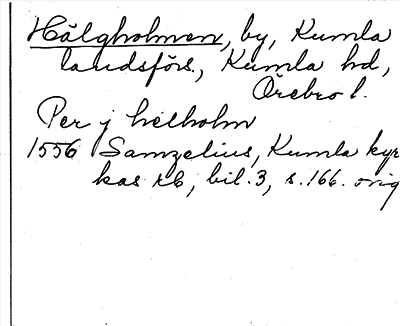 Hälgholmen, by, Kumla
landsförs., Kumla hd,
Örebro l.
Per j helholm
1556 Samzelius, Kumla kyr
kas rb, bil. 3, s. 166. orig